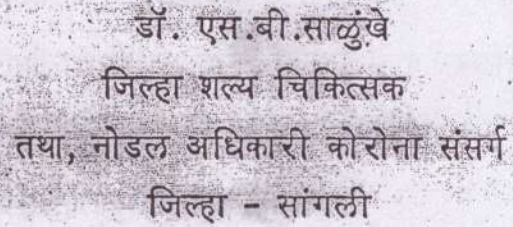 डॉ. एस.बी.साळुंखे
जिल्हा शल्य चिकित्सक
तथा, नोडल अधिकारी कोरोना संसर्ग
जिल्हा - सांगली